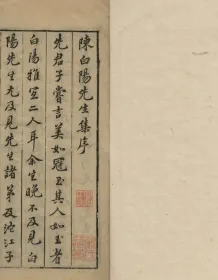 陳白陽先生集序
先君子嘗言美如冠玉其人如玉者
白陽雅宜二人耳余生晚不及見白
陽先生尤及見先生諸弟及沱江子